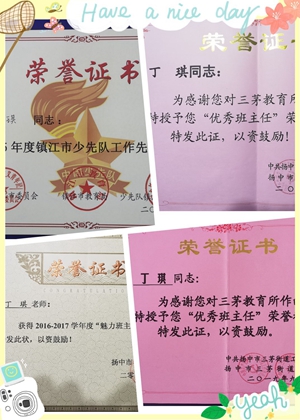 Have a nice day
荣誉证书
琪 同志:
5年度镇江市少先队工作先
中国少先队
荣誉证
丁 琪同志:
为感谢您对三茅教育
特授予您“优秀班主任”荣
特发此证,以资鼓励。
中共扬中
扬中市三
二〇
荣誉证书
丁 琪 老师:
获得2016-2017学年度“魅力班主
发此状,以资鼓励!
扬中市
二零
荣誉证书
丁 琪 同志:
为感谢您对三茅教育所作
特授予您“优秀班主任”荣
特发此证,以资鼓励。
中共扬中市三茅街道工
扬中市三茅街道
二〇一九年
yeah